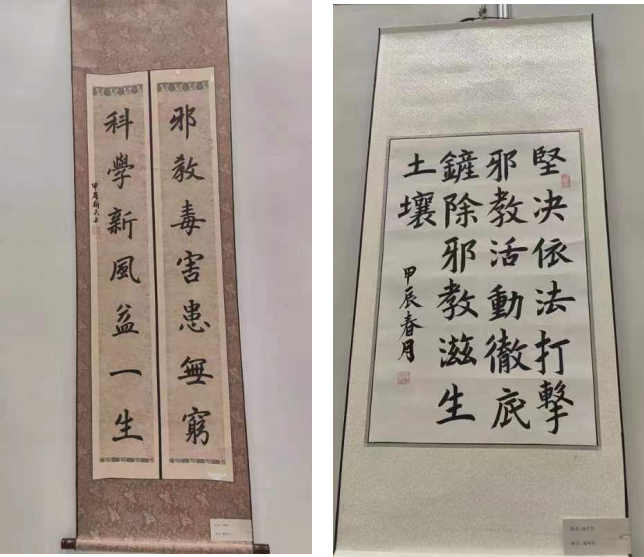 邪教毒害患無窮
科學新風益一生
堅決依法打擊
邪教活動徹底
鏟除邪教滋生
土壤
甲辰春月